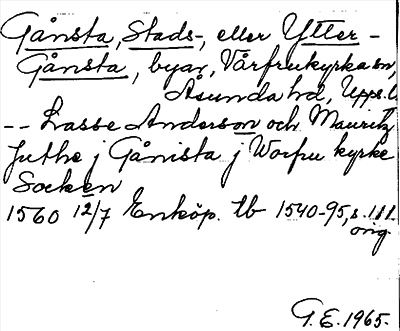 Gånsta, Stads-, eller Ytter-
Gånsta, byar, Vårfrukyrka sn,
Åsunda hd, Upps. l.
-- Lasse Anderson och Mauritz
Juthe j Gånista j Worfru kyrke
Socken
1560 12/7 Enköp. tb 1540-95, s. 111.
orig.
G.E. 1965.